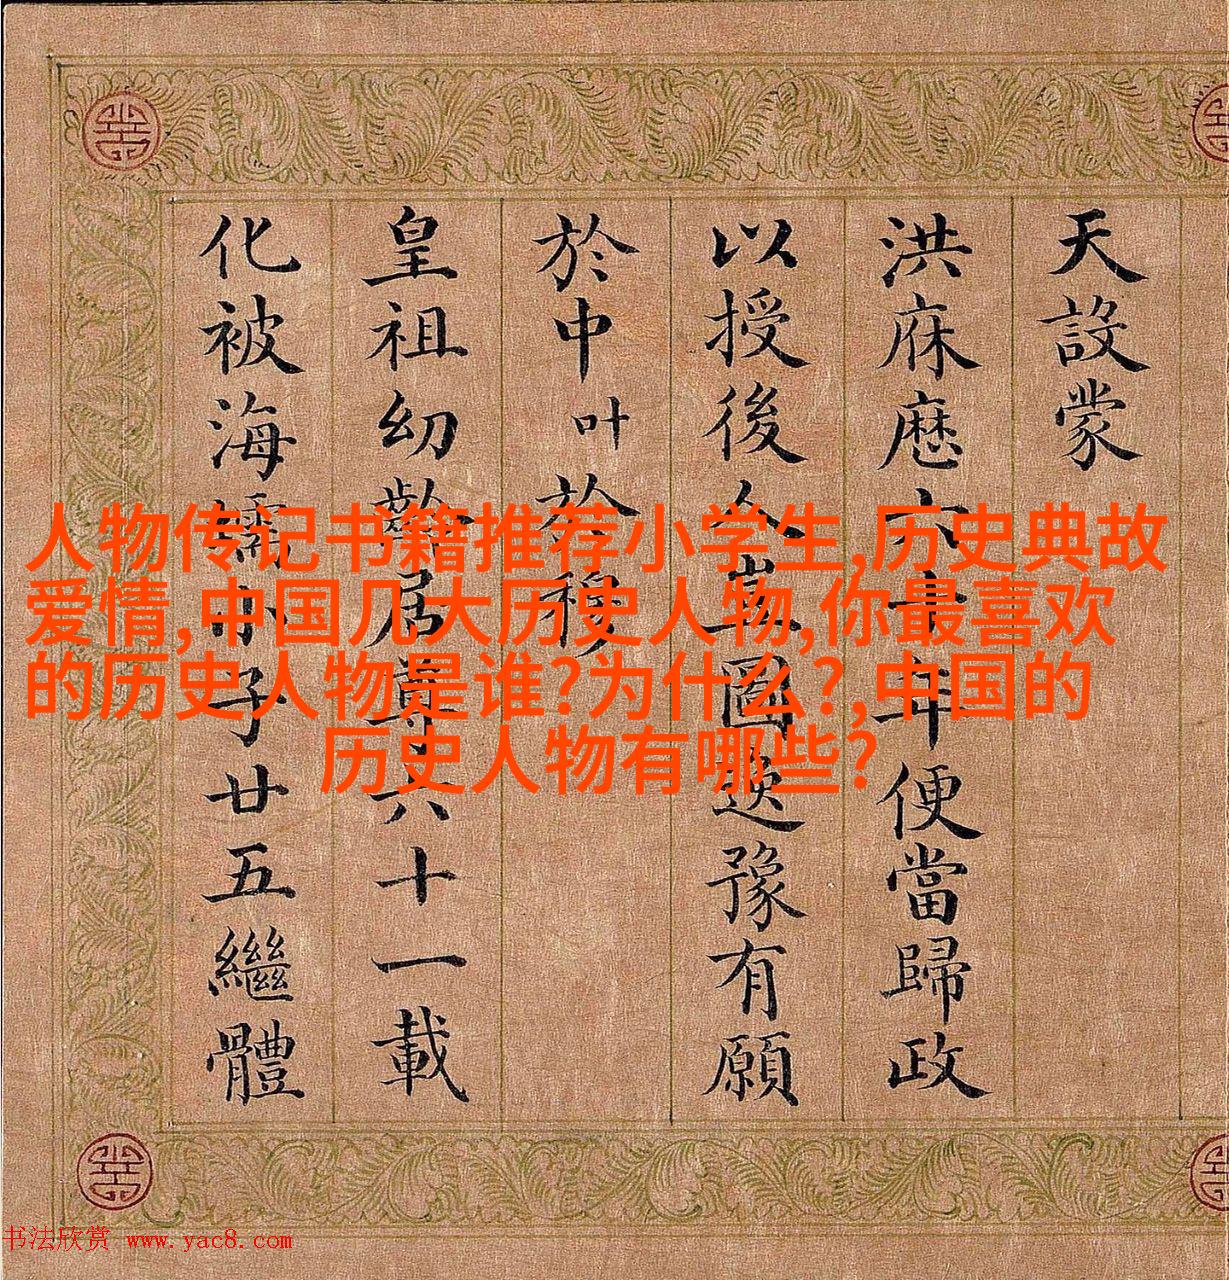 天設蒙
洪庥厯六十年便當歸政
以授後人豈圖逸豫有願
於中叶於穆
皇祖幼齡居尊六十一載
化被海小子廿五繼體
人物传记书籍推荐小学生,历史典故
爱情,中国几大历史人物,你最喜欢
的历史人物是谁?为什么?,中国的
历史人物有哪些?
书法欣赏 www.yac8.com